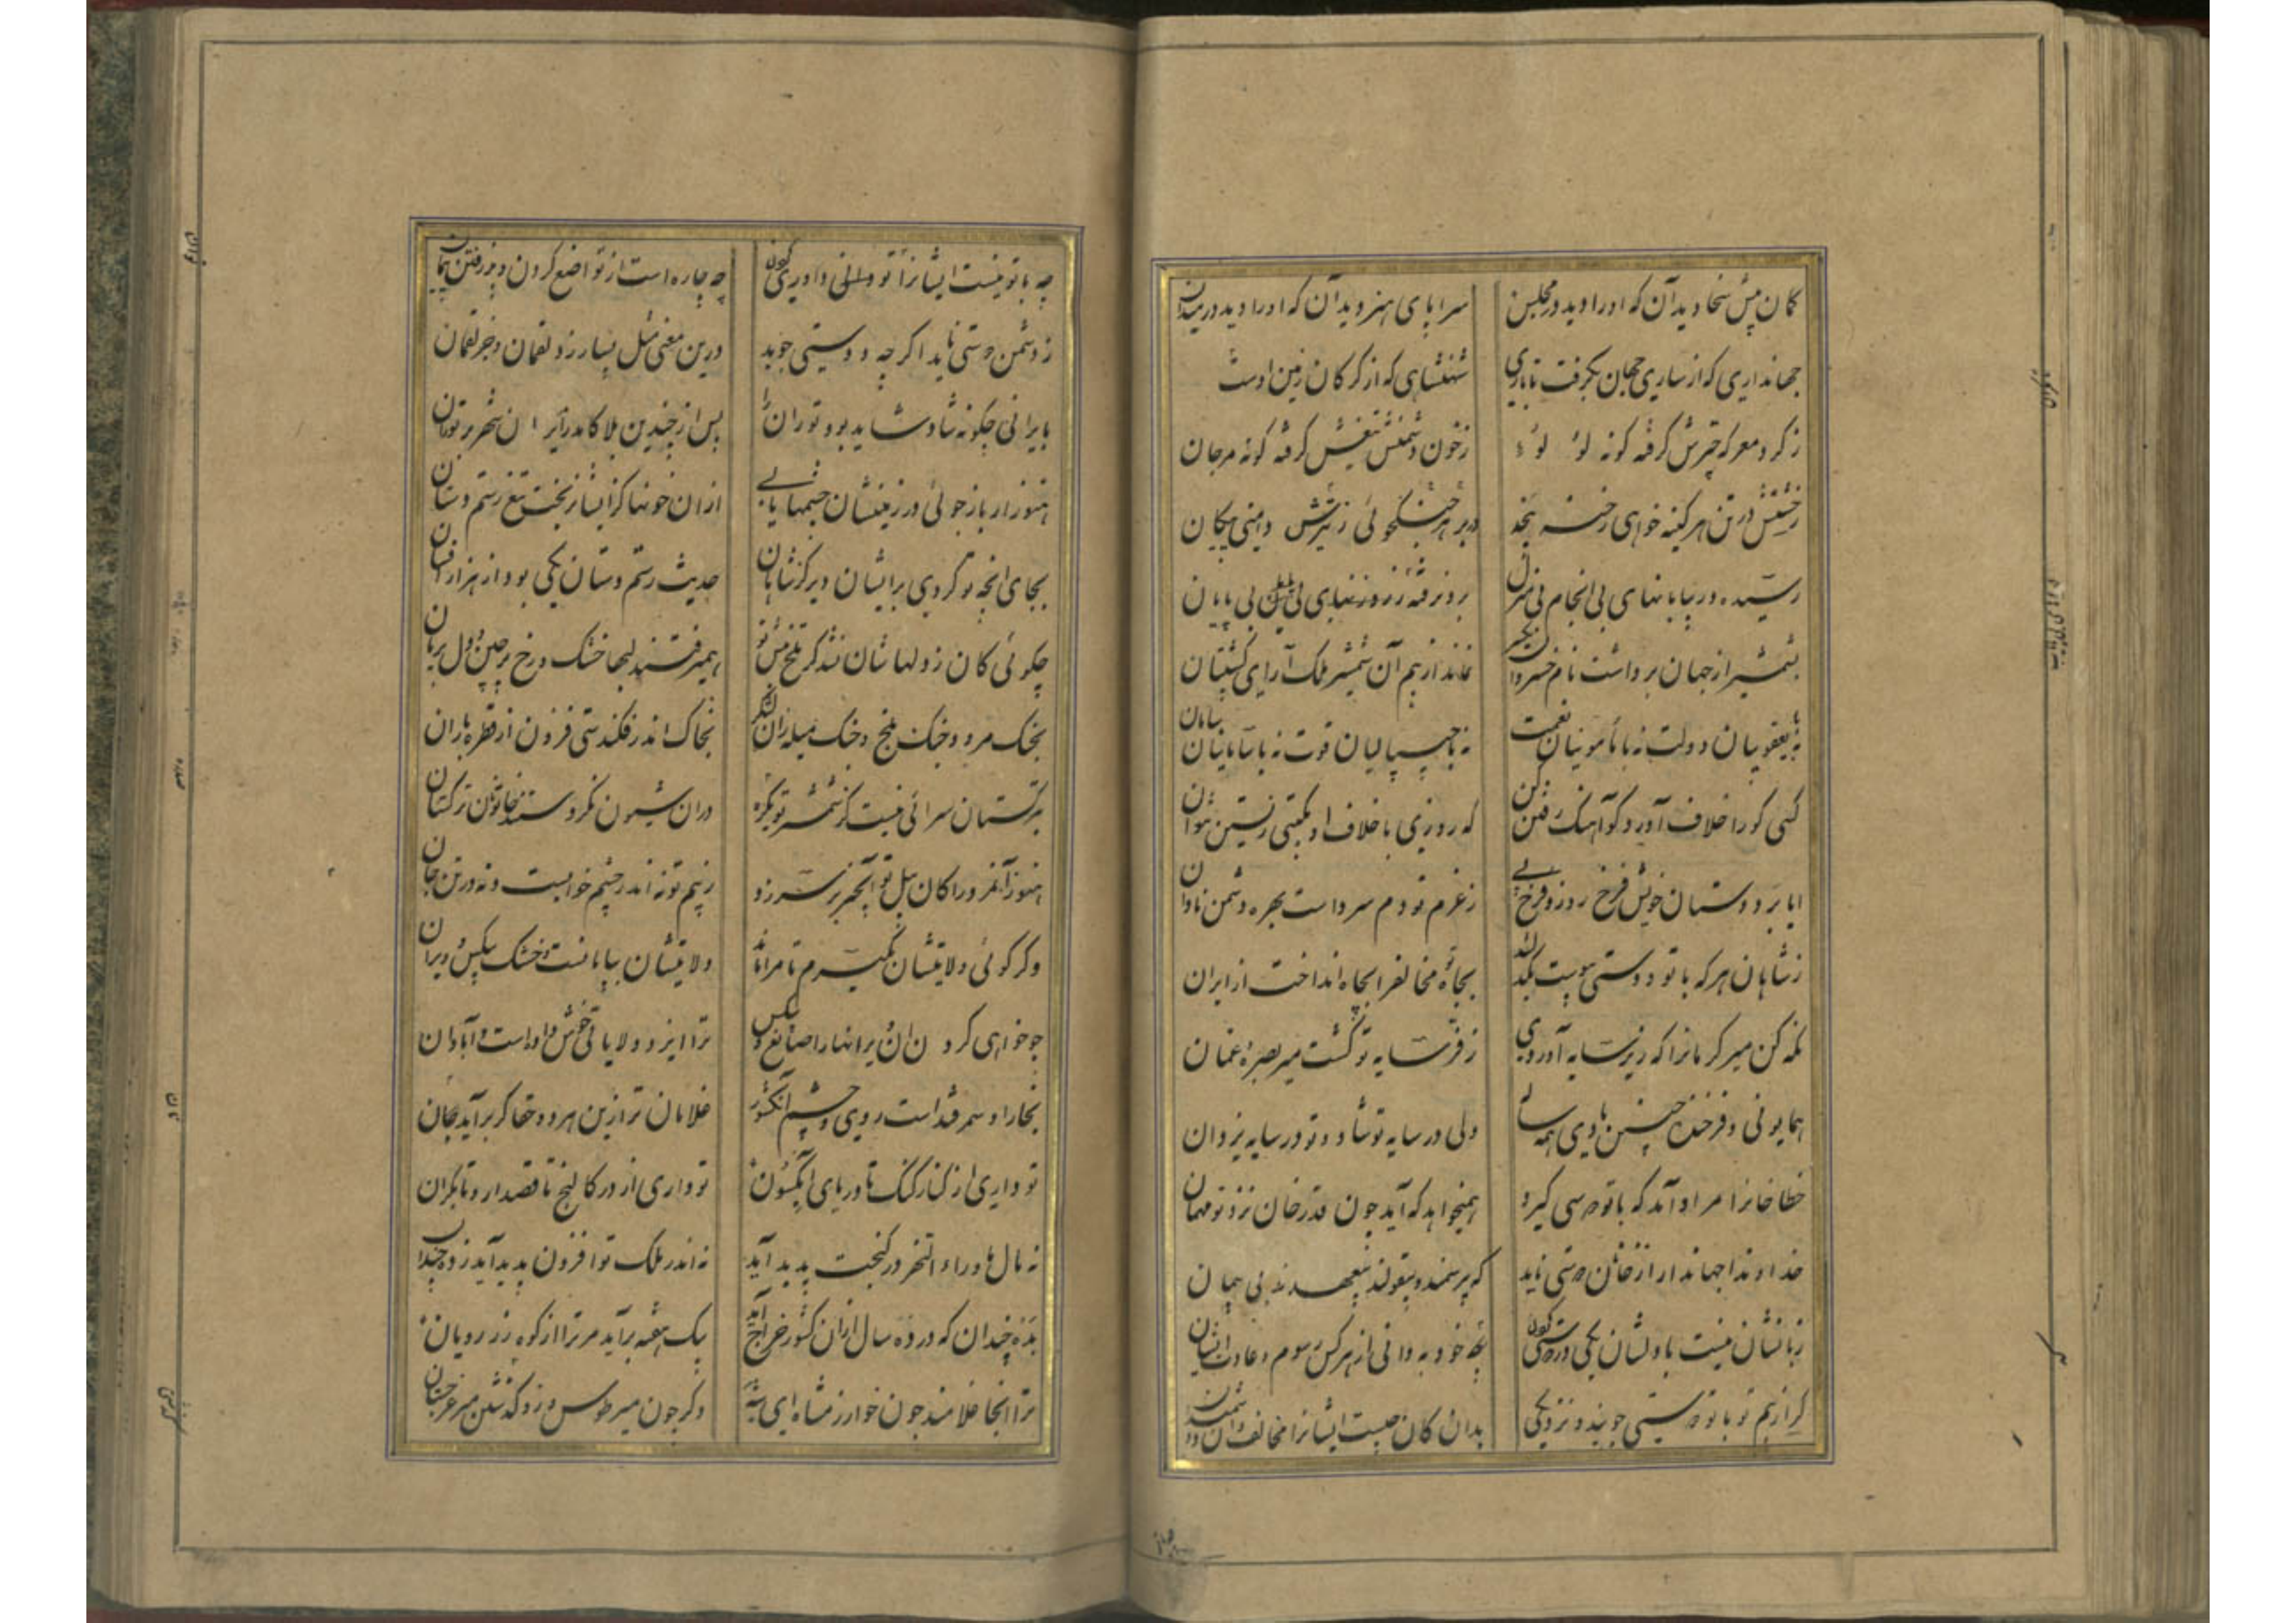 کمان پیش سخا دید آن که او را دید در مجلس سراپای هنر دید آن که او را دید در میدان
جهانداری که از ساری جهان بگرفت تا باری شهنشاهی که از گرگان زمین اوست
ز کرد معرکه چترش گرفته گونه لؤلؤ ز خون دشمنش تیغش گرفته گونه مرجان
ز خشتش در تن هر کینه خواهی رخنه بر هر جنگجوئی ز تیرش بینی پیکان
رسیده در بیابانهای بی انجام بی منزل برون رفته ز رود بی پایان
بشمشیر از جهان برداشت نام خسروان یکسر نماند از بیم آن شمشیر ملک آرای کشتیان
نه با یعقوبیان دولت نه با مأمونیان نعمت نه با چیپالیان قوت نه با سامانیان سامان
کسی کو را خلاف آورد کو آهنگ رفتن کن که روزی با خلاف او بگیتی زیستن نتوان
ایا بر دوستان خویش فرخ روز و فرخ پی ز عزم تو دم سرد است بهره دشمن نادان
ز شاهان هر که با تو دوستی پیوست یکذره بجاه تو مخالف را بچاه انداخت از ایران
نگه کن میر کرمان را که زیر سایه آوردی ز فر سایه تو گشت میر بصره و عمان
همایونی و فرخنده چنین بادی همه ساله ولی در سایه تو شاد و تو در سایه یزدان
خطا خان را مراد آمد که با تو دوستی گیرد همیخواهد که آید چون قدر خان نزد تو مهمان
خداوندا جهاندارا ز خانان دوستی ناید که بی رسمند و بی قولند و بد عهدند و بی پیمان
زبانشان نیست با دلشان یکی در دوستی کردن تو خود به دانی از هر کس رسوم و عادت ایشان
گر از بیم تو با تو دوستی جویند و نزدیکی بدان کان چیست ایشان را مخالف دان و دشمن دان
چه با تو نیست ایشان را توانی داوری کردن چه چاره است از تواضع کردن و پذرفتن پیمان
ز دشمن دوستی ناید اگر چه دوستی جوید درین معنی مثل بسیار زد لقمان و جز لقمان
بایرانی چگونه شاد شاید بود تورانی پس از چندین بلا کامد ز ایران شهر بر توران
هنوز ار باز جوئی در زمینشان چشمها یابی از آن خونها کز ایشان ریخت تیغ رستم دستان
بجای آنچه تو کردی بر ایشان در گه شاهان حدیث رستم دستان یکی بود از هزار افسان
چگوئی کان ز دلهاشان شد گر تلخ همی رفتند لبها خشک و رخ پر چین و دل بریان
بجنگ مرو و جنگ بلخ و جنگ میله زان لشکر بخاک اندر فکندستی فزون از قطره باران
بترکستان سرائی نیست کز شمشیر تو دران شیون نکردستند خاتونان ترکستان
هنوز آن مرد را کان پیل تو ز بیم تو نه اندر چشم خوابست و نه در تن جان
وگر گوئی ولایتشان بگیرم تا مرا باشد ولایتشان بیابانست و خشک و بیکس و ویران
چو خواهی کرد آن ویرانها را ضایع و بیکس ترا ایزد ولایتهای خوش داده است و آبادان
بخارا و سمرقند است روی و چشم آن کشور غلامان ترا زین هر دو حقا گر برآید جان
تو داری از کنار گنگ تا دریای آبسکون تو داری از در کالنج تا قصدار و تا مکران
نه مال ماوراء النهر در گنجت پدید آید نه اندر ملک تو افزون پدید آید زو چندان
بده چندان که در ده سال از آن کشور خراج آید بیک هفته برآید مر ترا از کوه زر رویان
ترا آنجا غلامند چون خوارزمشاه ای شه وگر چون میر طوس و زو گذشتن میر غرجستان